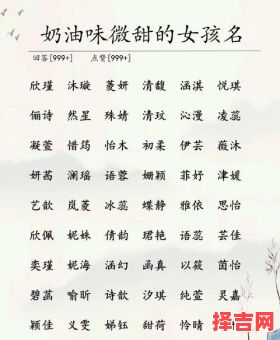 奶油味微甜的女孩名
回答[999+] 点赞[999+]
欣瑾 沐璇 菱妍 清馥 涵淇 悦琪
俪诗 然星 殊婧 清玟 沁漫 凌蕊
凝萱 惜筠 怡木 初柔 伊芸 薇沐
妍茜 澜瑶 语蓉 姗颖 菲妤 津媛
艺歆 岚菱 冰蕊 蝶静 雅依 思怡
欣佩 妮姝 倩韵 珺艳 语蕊 芸佳
奕瑾 妮海 涵幻 函真 以筱 茵怡
碧菡 喻昕 诗歆 汐琪 纯萱 灵嘉
颖佳 义雯 娣钰 甜荷 怜晴
择吉网